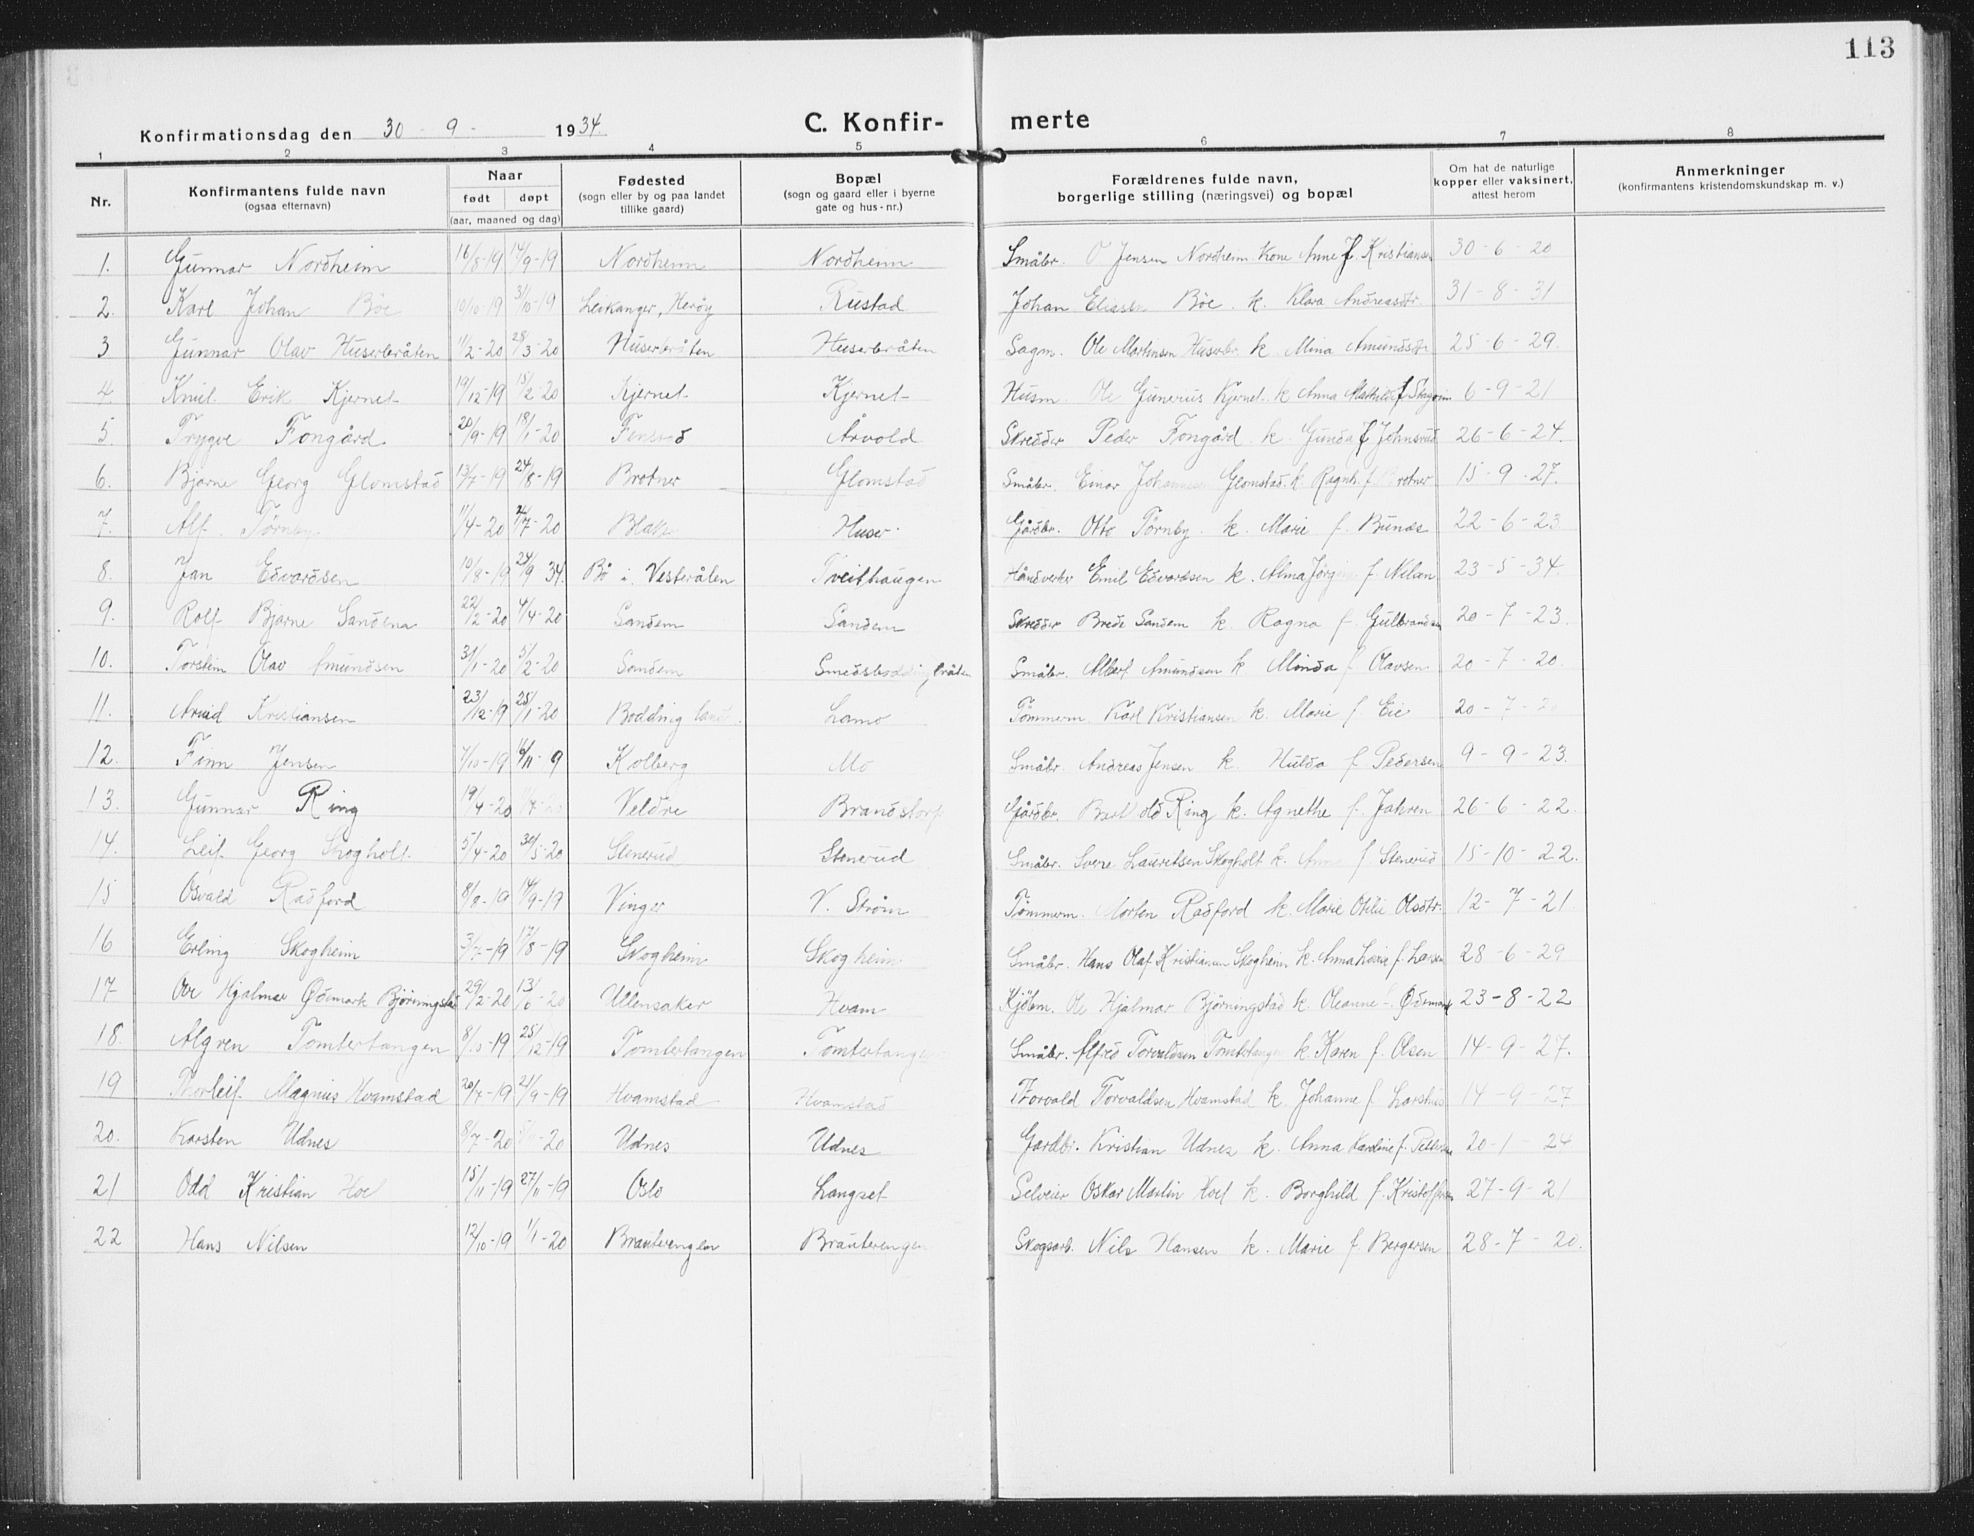 113
Konfirmationsdag den 30 - 9 - 1934 C. Konfir- merte
1 2 3 4 5 6 7 8
Nr. Konfirmantens fulde navn (ogsaa efternavn) Naar født døpt (aar, maaned og dag) Fødested (sogn eller by og paa landet tillike gaard) Bopæl (sogn og gaard eller i byerne gate og hus-nr.) Forældrenes fulde navn, borgerlige stilling (næringsvei) og bopæl Om hat de naturlige kopper eller vaksinert, attest herom Anmerkninger (konfirmantens kristendomskundskap m. v.)
1. Gunnar Nordheim 16/8-19 14/9-19 Nordheim Nordheim Småbr. O Jensen Nordheim. Kone Anne f. Kristiansen 30-6-20
2. Karl Johan Böe 10/10-19 31/10-19 Leikanger, Heröy Rustad Johan Eliassen Böe. k. Klara Andreasdtr. 31-8-31
3 Gunnar Olav Huserbråten 11/2-20 28/3-20 Huserbråten Huserbråten Sagm. Ole Martinsen Huserbr. k. Mina Amundsdtr 25-6-29.
4. Knut Erik Kjernet 19/12-19 15/2-20 Kjernet Kjernet Husm. Ole Gunerius Kjernet. k Anna Mathilde f 6-9-21
5. Trygve Fongård 20/9-19 18/1-20 Årvold Skredder Peder Fongård. k. Gunda f Johnsrud 26-6-24.
6. Bjarne Georg Glomstad 13/7-19 24/8-19 Brotner Glomstad Småbr. Einar Johannessen Glomstad. k. Ragnh. f. Brotner 15-9-27.
7. Alf Törnby 11/4-20 /7-20 Blaker Huser Gårdbr. Otto Törnby. k. Marie f. Bunæs 22-6-23
8. Jan Edvardsen 10/8-19 24/9 34. Bö i Vesterålen Tveithaugen Håndverker Emil Edvardsen k. Alma f. Nilsen 23-5-34.
9. Rolf Bjarne Sandena 22/2-20 4/4-20 Sandem Sandem Skredder Brede Sandem k. Ragna f. Gulbrandsen 20-7-23.
10. Torstein Olav Amundsen 31/1-20 5/2-20 Sandem Småbr. Albert Amundsen k Minda f Olavsen 20-7-20.
11. Arvid Kristiansen 23/12-19 25/1-20 Bodding land. Lamo Tömmerm. Karl Kristiansen k. Marie f Eie 20-7-20
12. Finn Jensen 7/10-19 16/11-9 Kolberg Mo Småbr. Andreas Jensen k. Hulda f Pedersen 9-9-23.
13. Gunnar Ring 19/4-20 Veldre Brandstorp Gårdbr. Ring k. Agnethe f. Jahren 26-6-22.
14. Leif Georg Skogholt 5/4-20 30/5-20 Stenerud Stenerud Småbr. Sverre Lauritsen Skogholt k. f Stenerud 15-10-22.
15 Osvald Radford 8/8-19 14/9-19 Vinger V. Ström Tömmerm. Morten Radford k. Marie Otilie Olsdtr. 12-7-21.
16 Erling Skogheim 3/7-19 17/8-19 Skogheim Skogheim Småbr. Hans Olaf Kristiansen Skogheim k. Anna Lovise f. Larsen 28-6-29
17 Ove Hjalmar Ödemark Björningstad 29/2-20 13/6-20 Ullensaker Hvam Kjöbm. Ole Hjalmar Björningstad k. Oleanne f. Ödemark 23-8-22
18. Algren Tomtertangen 8/10-19 25/12-19 Tomtertangen Tomtertangen Småbr. Alfred Torvaldsen Tomtertangen k. Karen f. Olsen 14-9-27.
19 Thorleif Magnus Hvamstad 20/7-19 21/9-19 Hvamstad Hvamstad Thorvald Torvaldsen Hvamstad k. Johanne f. Larshus 14-9-27
20. Karsten Udnes 8/7-20 -20 Udnes Udnes Gardbr. Kristian Udnes k. Anna Kardine f. Pettersen 20-1-24
21 Odd Kristian Hoel 15/11-19 27/11-19 Oslo Langset Selveier Oskar Martin Hoel k. Borghild f. Kristoffersen 27-9-21
22 Hans Nilsen 12/10-19 1/1-20 Brauterengen Brauterengen Skogsarb. Nils Hansen k. Marie f. Bergersen 28-7-20.